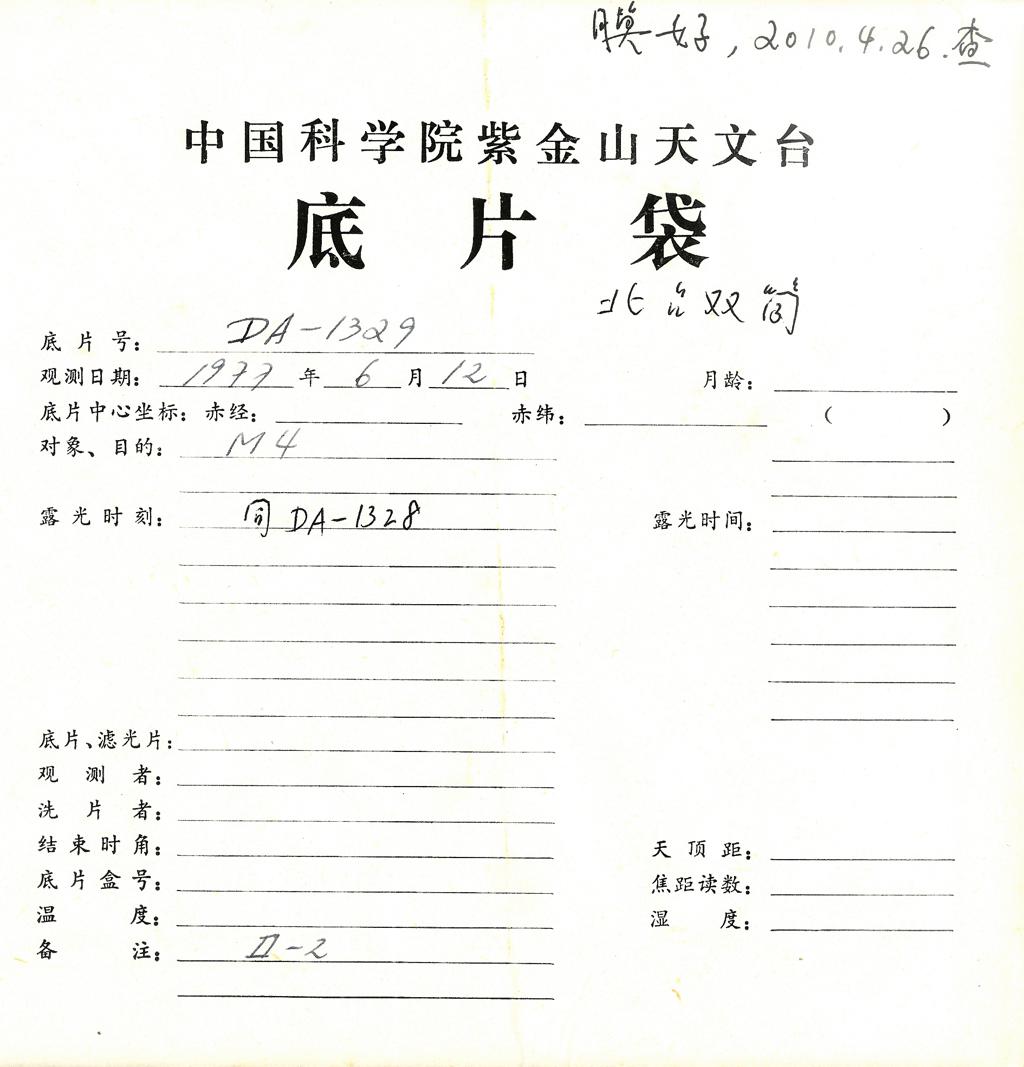 膜好，2010.4.26.查
中国科学院紫金山天文台
底片袋
北台双筒
底片号： DA-1329
观测日期： 1977 年 6 月 12 日 月龄：
底片中心坐标：赤经： 赤纬： （ ）
对象、目的： M4
露光时刻： 同 DA-1328 露光时间：
底片、滤光片：
观测者：
洗片者：
结束时角： 天顶距：
底片盒号： 焦距读数：
温度： 湿度：
备注： Ⅱ-2